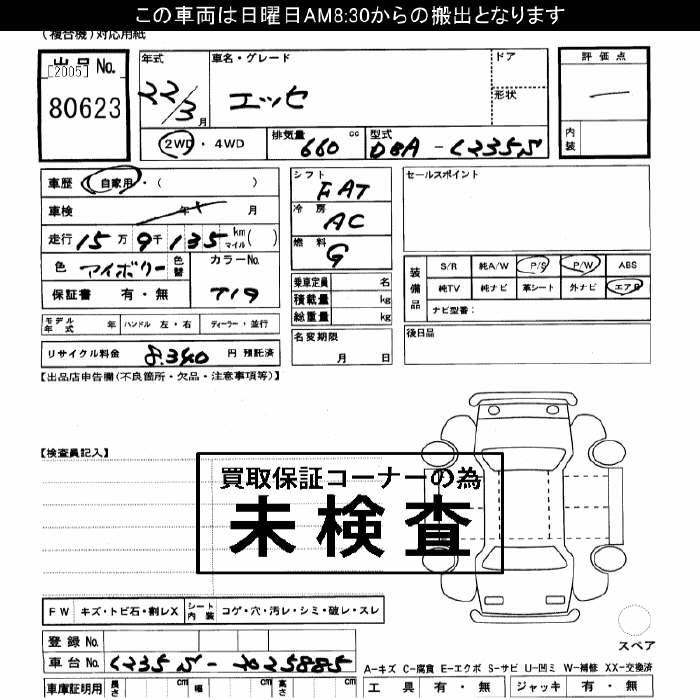 この車両は日曜日AM8:30からの搬出となります
(複合機)対応用紙
出品 No.
[2005]
80623
年式
車名・グレード
ドア
評価点
22/3 月
エッセ
形状
内装
2WD ・ 4WD
排気量 660 cc
型式 DBA - L235S
車歴 自家用・( )
車検 年 月
走行 15万 9千 135 km マイル ( )
色 アイボリー 色替 カラーNo.
保証書 有・無 T19
モデル年式 年 ハンドル 左・右 ディーラー・並行
リサイクル料金 8,340 円 預託済
シフト FAT
冷房 AC
燃料 G
乗車定員 名
積載量 kg
総重量 kg
名変期限
月 日
セールスポイント
装備品
S/R 純A/W P/S P/W ABS
純TV 純ナビ 革シート 外ナビ エアB
ナビ型番:
後日品
【出品店申告欄(不良箇所・欠品・注意事項等)】
【検査員記入】
買取保証コーナーの為
未検査
FW キズ・トビ石・割レX シート内装 コゲ・穴・汚レ・シミ・破レ・スレ
登録 No.
車台 No. L235S - 2025885
車庫証明用 長さ cm 幅 cm 高さ cm
スペア
A-キズ C-腐食 E-エクボ S-サビ U-凹ミ W-補修 XX-交換済
工具 有・無 ジャッキ 有・無